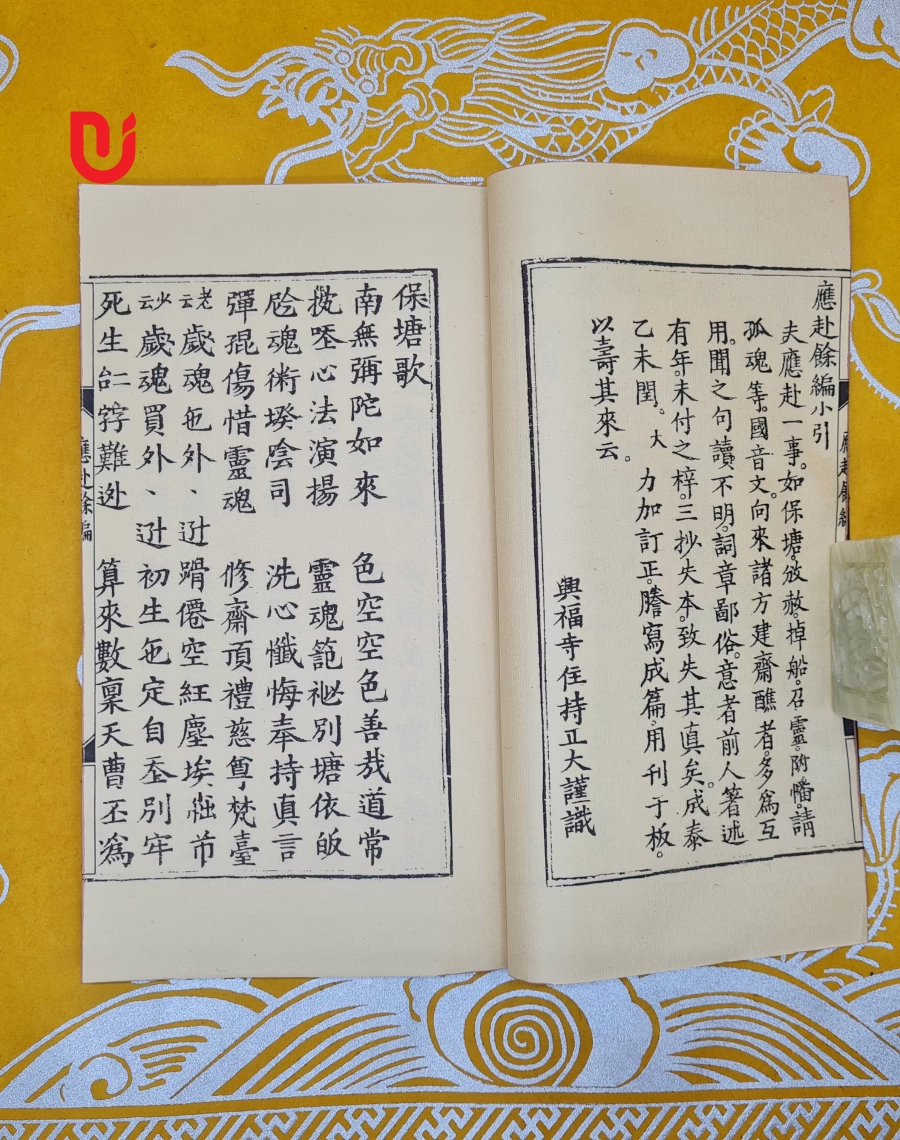 應赴餘編小引
夫應赴一事。如保塘。放赦。掉船。召靈。附幡。請
孤魂等。國音文。向來諸方建齋醮者。多爲互
用。聞之句讀不明。詞章鄙俗。意者前人著述
有年。未付之梓。三抄失本。致失其眞矣。成泰
乙未閏。大 力加訂正。謄寫成篇。用刊于板。
以壽其來云。
興福寺住持正大謹識
應赴餘編
保塘歌
南無彌陀如來 色空空色善哉道常
心法演揚 靈魂 別塘依皈
魂術 陰司 洗心懺悔奉持眞言
彈琨傷惜靈魂 修齋頂禮慈尊梵臺
老云歲魂 外、 僊空紅塵埃
少云歲魂買外、 初生 定自 別牢
死生 難 算來數稟天曹丕爲
應赴餘編